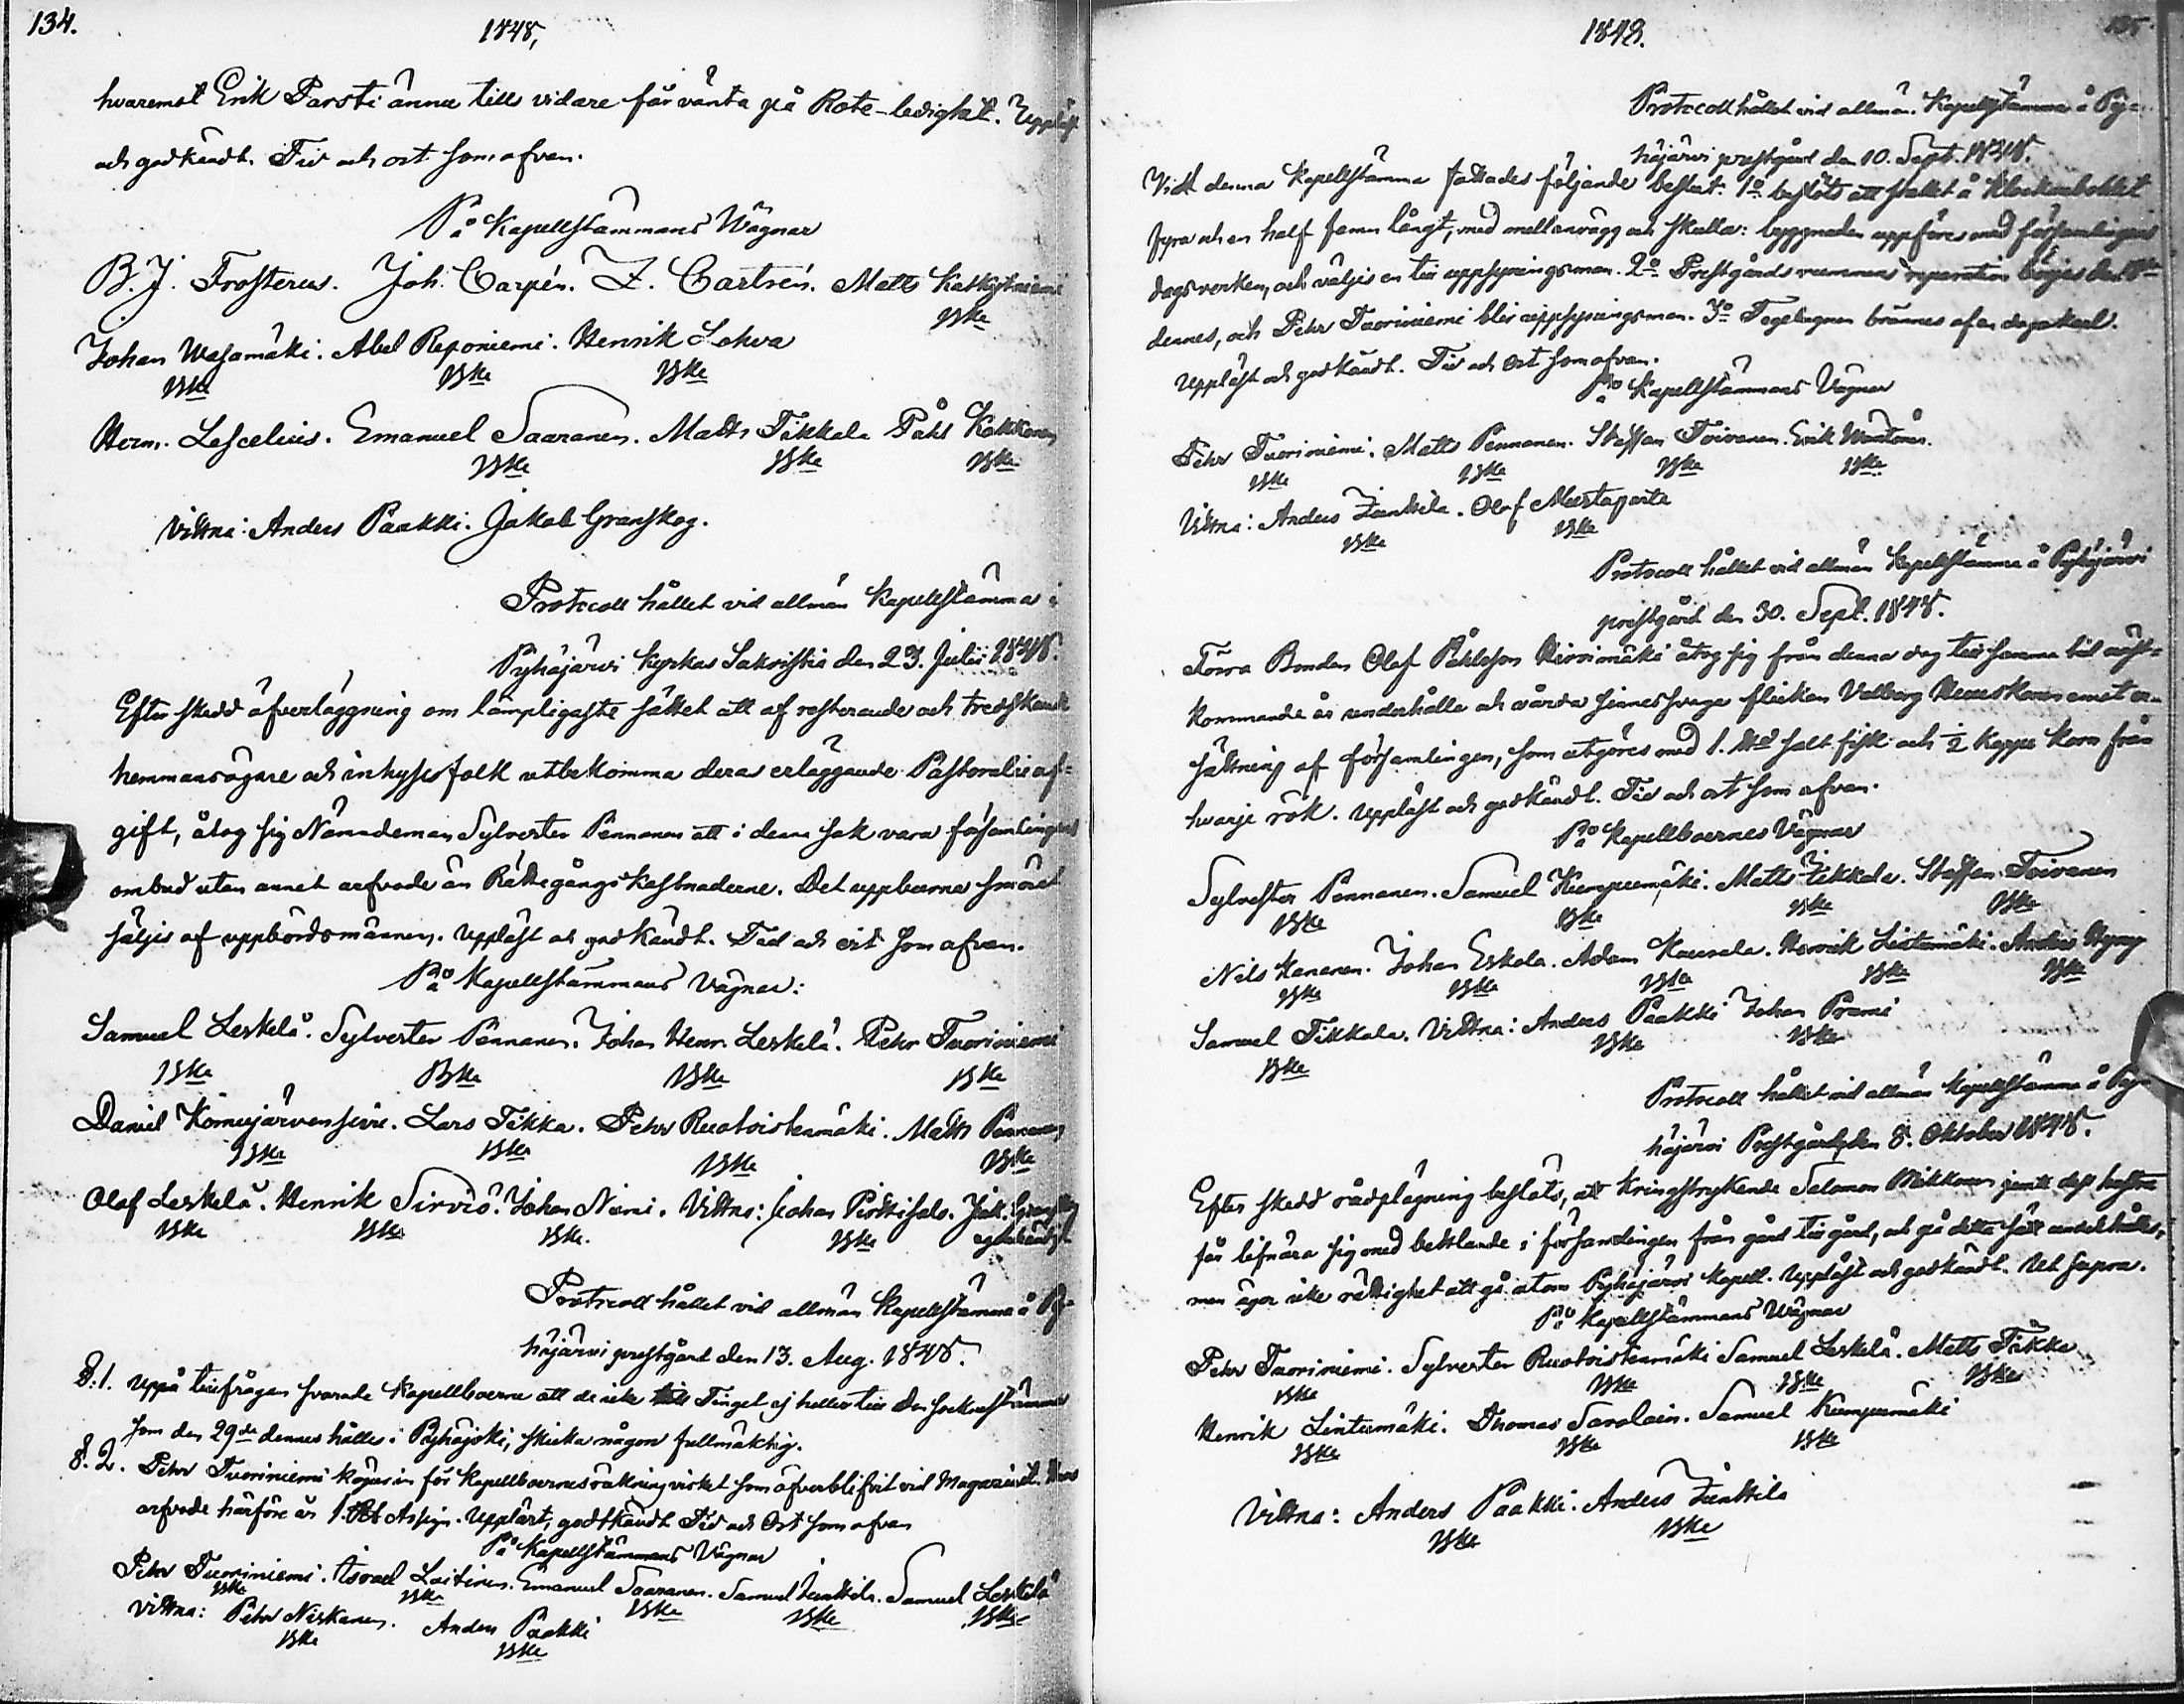 134.
1848,
hvaremot Erik Parsti ännu till vidare får vänta på Rote-ledighet. Uppläst
och godkändt. Tid och ort som ofvan.
På Kapellstämmans Wägnar
B. J. Frosterus. Joh. Carpén. Z. Cartsén. Matts
BMke
Johan Wasamäki. Abel Reponiemi. Henrik Lohva
BMke BMke BMke
Herm. Lescelius. Emanuel Saaranen. Matts Tikkala Påhl Kokkonen
BMke BMke BMke
Vittna: Anders Paakki. Jakob Granskog.
Protocoll hållet vid allmän Kapellstämma i
Pyhäjärvi kyrkas Sakristia den 23. Julii 1848.
Efter skedd öfverläggning om lämpligaste sättet att af resterande och tredskande
hemmansägare och inhysesfolk utbekomma deras erläggande Pastoralie af-
gift, åtog sig Nämndeman Sylvester Pennanen att i denna sak vara församlingens
ombud utan annat arfvode än Rättegångs kostnaderne. Det uppburna smöret
säljes af uppbördsmännen. Uppläst och godkändt. Tid och ort som ofvan.
På Kapellstämmans Vägnar:
Samuel Leskelä. Sylvester Pennanen. Johan Henr. Leskelä. Pehr Tuoriniemi
BMke BMke BMke BMke
Daniel Komujärvensivu. Lars Tikka. Pehr Ruotoistenmäki. Matts Pennanen
BMke BMke BMke BMke
Olof Leskelä. Henrik Sirviö. Johan Niemi. Vittna: Johan Piäkisalo. Jak. Granskog
BMke BMke BMke. BMke egenhändigt
Protocoll hållet vid allmän Kapellstämma å Py-
häjärvi prestgård den 13. Aug. 1848.
§. 1. Uppå tillfrågan svarade Kapellboerne att de icke till Tinget ej heller till den sockenstämma
som den 29de dennes hålles i Pyhäjoki, skicka någon fullmäktig.
§. 2. Pehr Tuoriniemi köper in för Kapellboernes räkning virket som öfverblifvit vid Magasinet. Hans
arfvode härföre är 1. Rub Assign. Uppläst, godtkändt Tid och Ort som ofvan
På Kapellstämmans Vägnar
Pehr Tuoriniemi. Israel Laitinen. Emanuel Saaranen. Samuel Junttila. Samuel Leskelä
BMke BMke BMke BMke BMke
Vittna: Pehr Niskanen. Anders Paakki
BMke BMke
1848.
135
Protocoll hållet vid allmän Kapellstämma å Py-
häjärvi prestgård den 10. Sept. 1848.
Vid denna Kapellstämma fattades följande beslut: 1o beslöts att stallet å Klockarebolet
fyra och en half famn långt, med mellanvägg och skulla: byggnaden uppföres med församlingens
dagsverken, och väljes en till uppsyningsman. 2o Prestgårds rummens reparation börjas den
dennes, och Pehr Tuoriniemi blir uppsyningsman. 3o Tegelugnen brännes af en dagakarl.
Uppläst och godkändt. Tid och Ort som ofvan.
På Kapellstämmans Vägnar
Pehr Tuoriniemi. Matts Pennanen. Staffan Toivonen. Erik
BMke BMke BMke BMke
Vittna: Anders Junttila. Olof Mustaparta
BMke BMke
Protocoll hållet vid allmän Kapellstämma å Pyhäjärvi
prestgård den 30. Sept. 1848.
Förra Bonden Olof Påhlsson Hirvimäki åtog sig från denna dag till samma tid näst-
kommande år underhålla och vårda sinnessvaga flickan Valborg emot er-
sättning af församlingen, som utgöres med 1. salt fisk och ½ Kappe korn från
hvarje rök. Uppläst och godkändt. Tid och ort som ofvan.
På Kapellboernes Vägnar
Sylvester Pennanen. Samuel Kumpumäki. Matts Tikkala. Staffan Toivonen
BMke BMke BMke BMke
Nils Kananen. Johan Eskola. Adam Kausala. Henrik Lintumäki. Anders
BMke BMke BMke BMke BMke
Samuel Tikkala. Vittna: Anders Paakki Johan
BMke BMke BMke
Protocoll hållet vid allmän Kapellstämma å Py-
häjärvi Prestgård, den 8. Oktober 1848.
Efter skedd rådplägning beslöts, att kringstrykande Salomon Mikkonen jemte dess hustru
får lifnära sig med bettlande i församlingen från gård till gård, och på detta sätt underhålles,
men äger icke rättighet att gå utom Pyhäjärvi Kapell. Uppläst och godkändt. Ut supra.
På Kapellstämmans Wägnar
Pehr Tuoriniemi. Sylvester Ruotoistenmäki Samuel Leskelä. Matts Tikka
BMke BMke BMke BMke
Henrik Lintumäki. Thomas Savolain. Samuel Kumpumäki
BMke BMke BMke
Vittna: Anders Paakki. Anders Junttila
BMke BMke